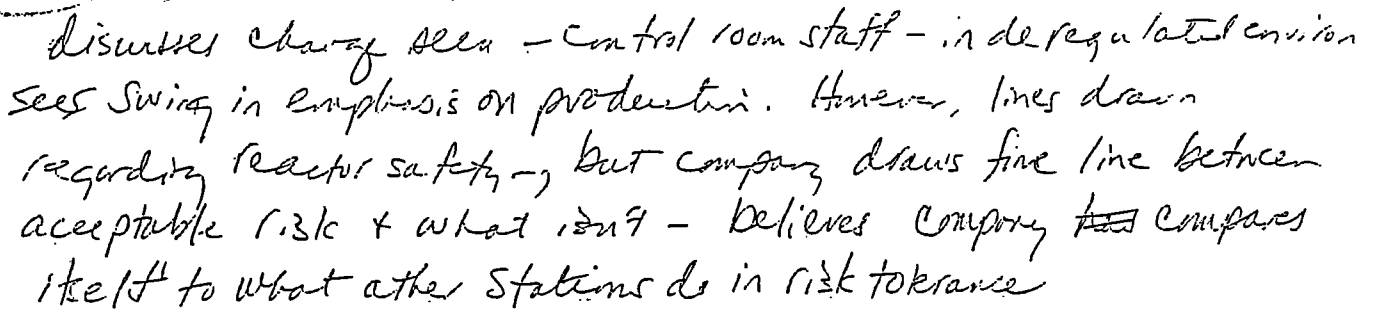 discusses change seen - Control room staff - in deregulated environ
sees swing in emphasis on production. However, lines drawn
regarding reactor safety -, but company draws fine line between
acceptable risk & what isn't - believes company has compares
itself to what other stations do in risk tolerance